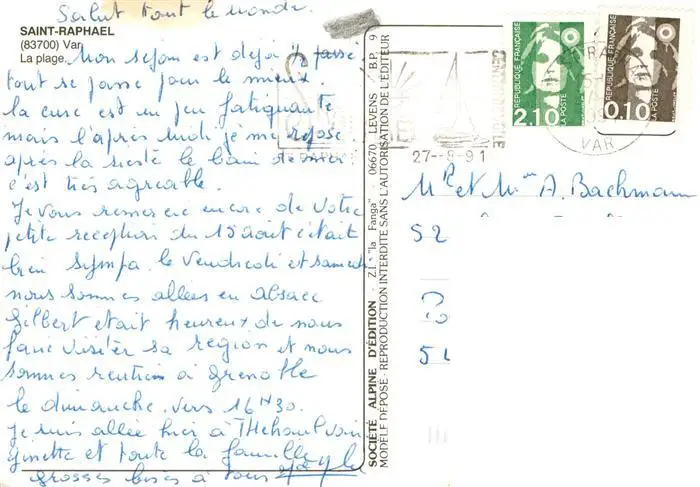 Salut tout le monde.
SAINT-RAPHAEL
(83700) Var
La plage.
Mon sejour est dejà ½ passé
tout se passe pour le mieux.
la cure est un peu fatiguante
mais l'après midi je me repose
après la sieste le bain de mer
c'est très agreable.
Je vous remercie encore de votre
petite reception du 15 août c'était
bien sympa. le Vendredi et samedi
nous sommes allées en Alsace
Gilbert etait heureux de nous
faire visiter sa region et nous
sommes rentrées à Grenoble
le dimanche. vers 16H30.
Je suis allée hier à Théhoul voir
Ginette et toute la famille
grosses bises à tous
SOCIÉTÉ ALPINE D'ÉDITION - Z.I. "la Fanga" - 06670 LEVENS - B.P. 9
MODÈLE DÉPOSÉ - REPRODUCTION INTERDITE SANS L'AUTORISATION DE L'ÉDITEUR
27-8-91
VAR
RÉPUBLIQUE FRANÇAISE
2,10
LA POSTE
RÉPUBLIQUE FRANÇAISE
0,10
LA POSTE
Mr et Mme A. Bachmann
52
51